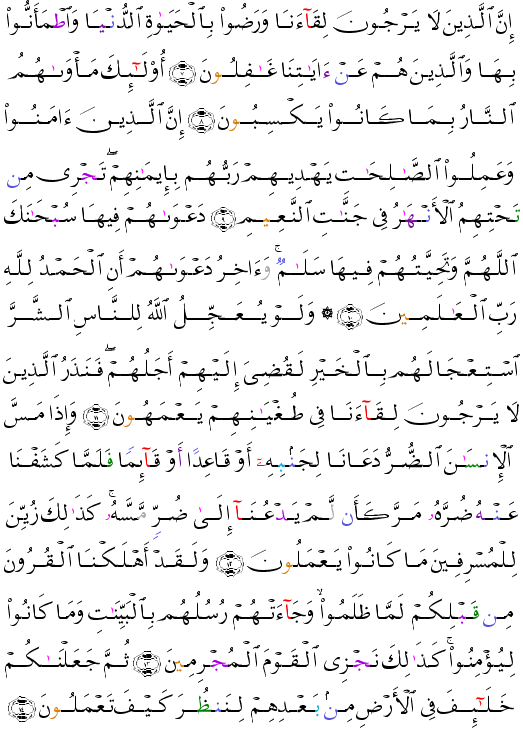 إِنَّ ٱلَّذِينَ لَا يَرْجُونَ لِقَآءَنَا وَرَضُوا۟ بِٱلْحَيَوٰةِ ٱلدُّنْيَا وَٱطْمَأَنُّوا۟
بِهَا وَٱلَّذِينَ هُمْ عَنْ ءَايَٰتِنَا غَٰفِلُونَ ۝٧ أُو۟لَٰٓئِكَ مَأْوَىٰهُمُ
ٱلنَّارُ بِمَا كَانُوا۟ يَكْسِبُونَ ۝٨ إِنَّ ٱلَّذِينَ ءَامَنُوا۟
وَعَمِلُوا۟ ٱلصَّٰلِحَٰتِ يَهْدِيهِمْ رَبُّهُم بِإِيمَٰنِهِمْ ۖ تَجْرِى مِن
تَحْتِهِمُ ٱلْأَنْهَٰرُ فِى جَنَّٰتِ ٱلنَّعِيمِ ۝٩ دَعْوَىٰهُمْ فِيهَا سُبْحَٰنَكَ
ٱللَّهُمَّ وَتَحِيَّتُهُمْ فِيهَا سَلَٰمٌ ۚ وَءَاخِرُ دَعْوَىٰهُمْ أَنِ ٱلْحَمْدُ لِلَّهِ
رَبِّ ٱلْعَٰلَمِينَ ۝١٠ ۞ وَلَوْ يُعَجِّلُ ٱللَّهُ لِلنَّاسِ ٱلشَّرَّ
ٱسْتِعْجَالَهُم بِٱلْخَيْرِ لَقُضِىَ إِلَيْهِمْ أَجَلُهُمْ ۖ فَنَذَرُ ٱلَّذِينَ
لَا يَرْجُونَ لِقَآءَنَا فِى طُغْيَٰنِهِمْ يَعْمَهُونَ ۝١١ وَإِذَا مَسَّ
ٱلْإِنسَٰنَ ٱلضُّرُّ دَعَانَا لِجَنۢبِهِۦٓ أَوْ قَاعِدًا أَوْ قَآئِمًا فَلَمَّا كَشَفْنَا
عَنْهُ ضُرَّهُۥ مَرَّ كَأَن لَّمْ يَدْعُنَآ إِلَىٰ ضُرٍّ مَّسَّهُۥ ۚ كَذَٰلِكَ زُيِّنَ
لِلْمُسْرِفِينَ مَا كَانُوا۟ يَعْمَلُونَ ۝١٢ وَلَقَدْ أَهْلَكْنَا ٱلْقُرُونَ
مِن قَبْلِكُمْ لَمَّا ظَلَمُوا۟ ۙ وَجَآءَتْهُمْ رُسُلُهُم بِٱلْبَيِّنَٰتِ وَمَا كَانُوا۟
لِيُؤْمِنُوا۟ ۚ كَذَٰلِكَ نَجْزِى ٱلْقَوْمَ ٱلْمُجْرِمِينَ ۝١٣ ثُمَّ جَعَلْنَٰكُمْ
خَلَٰٓئِفَ فِى ٱلْأَرْضِ مِنۢ بَعْدِهِمْ لِنَنظُرَ كَيْفَ تَعْمَلُونَ ۝١٤